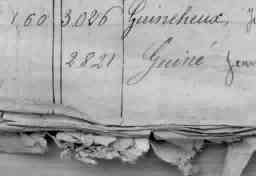 1,60 3,026 Guineheux,
2821 Guiné